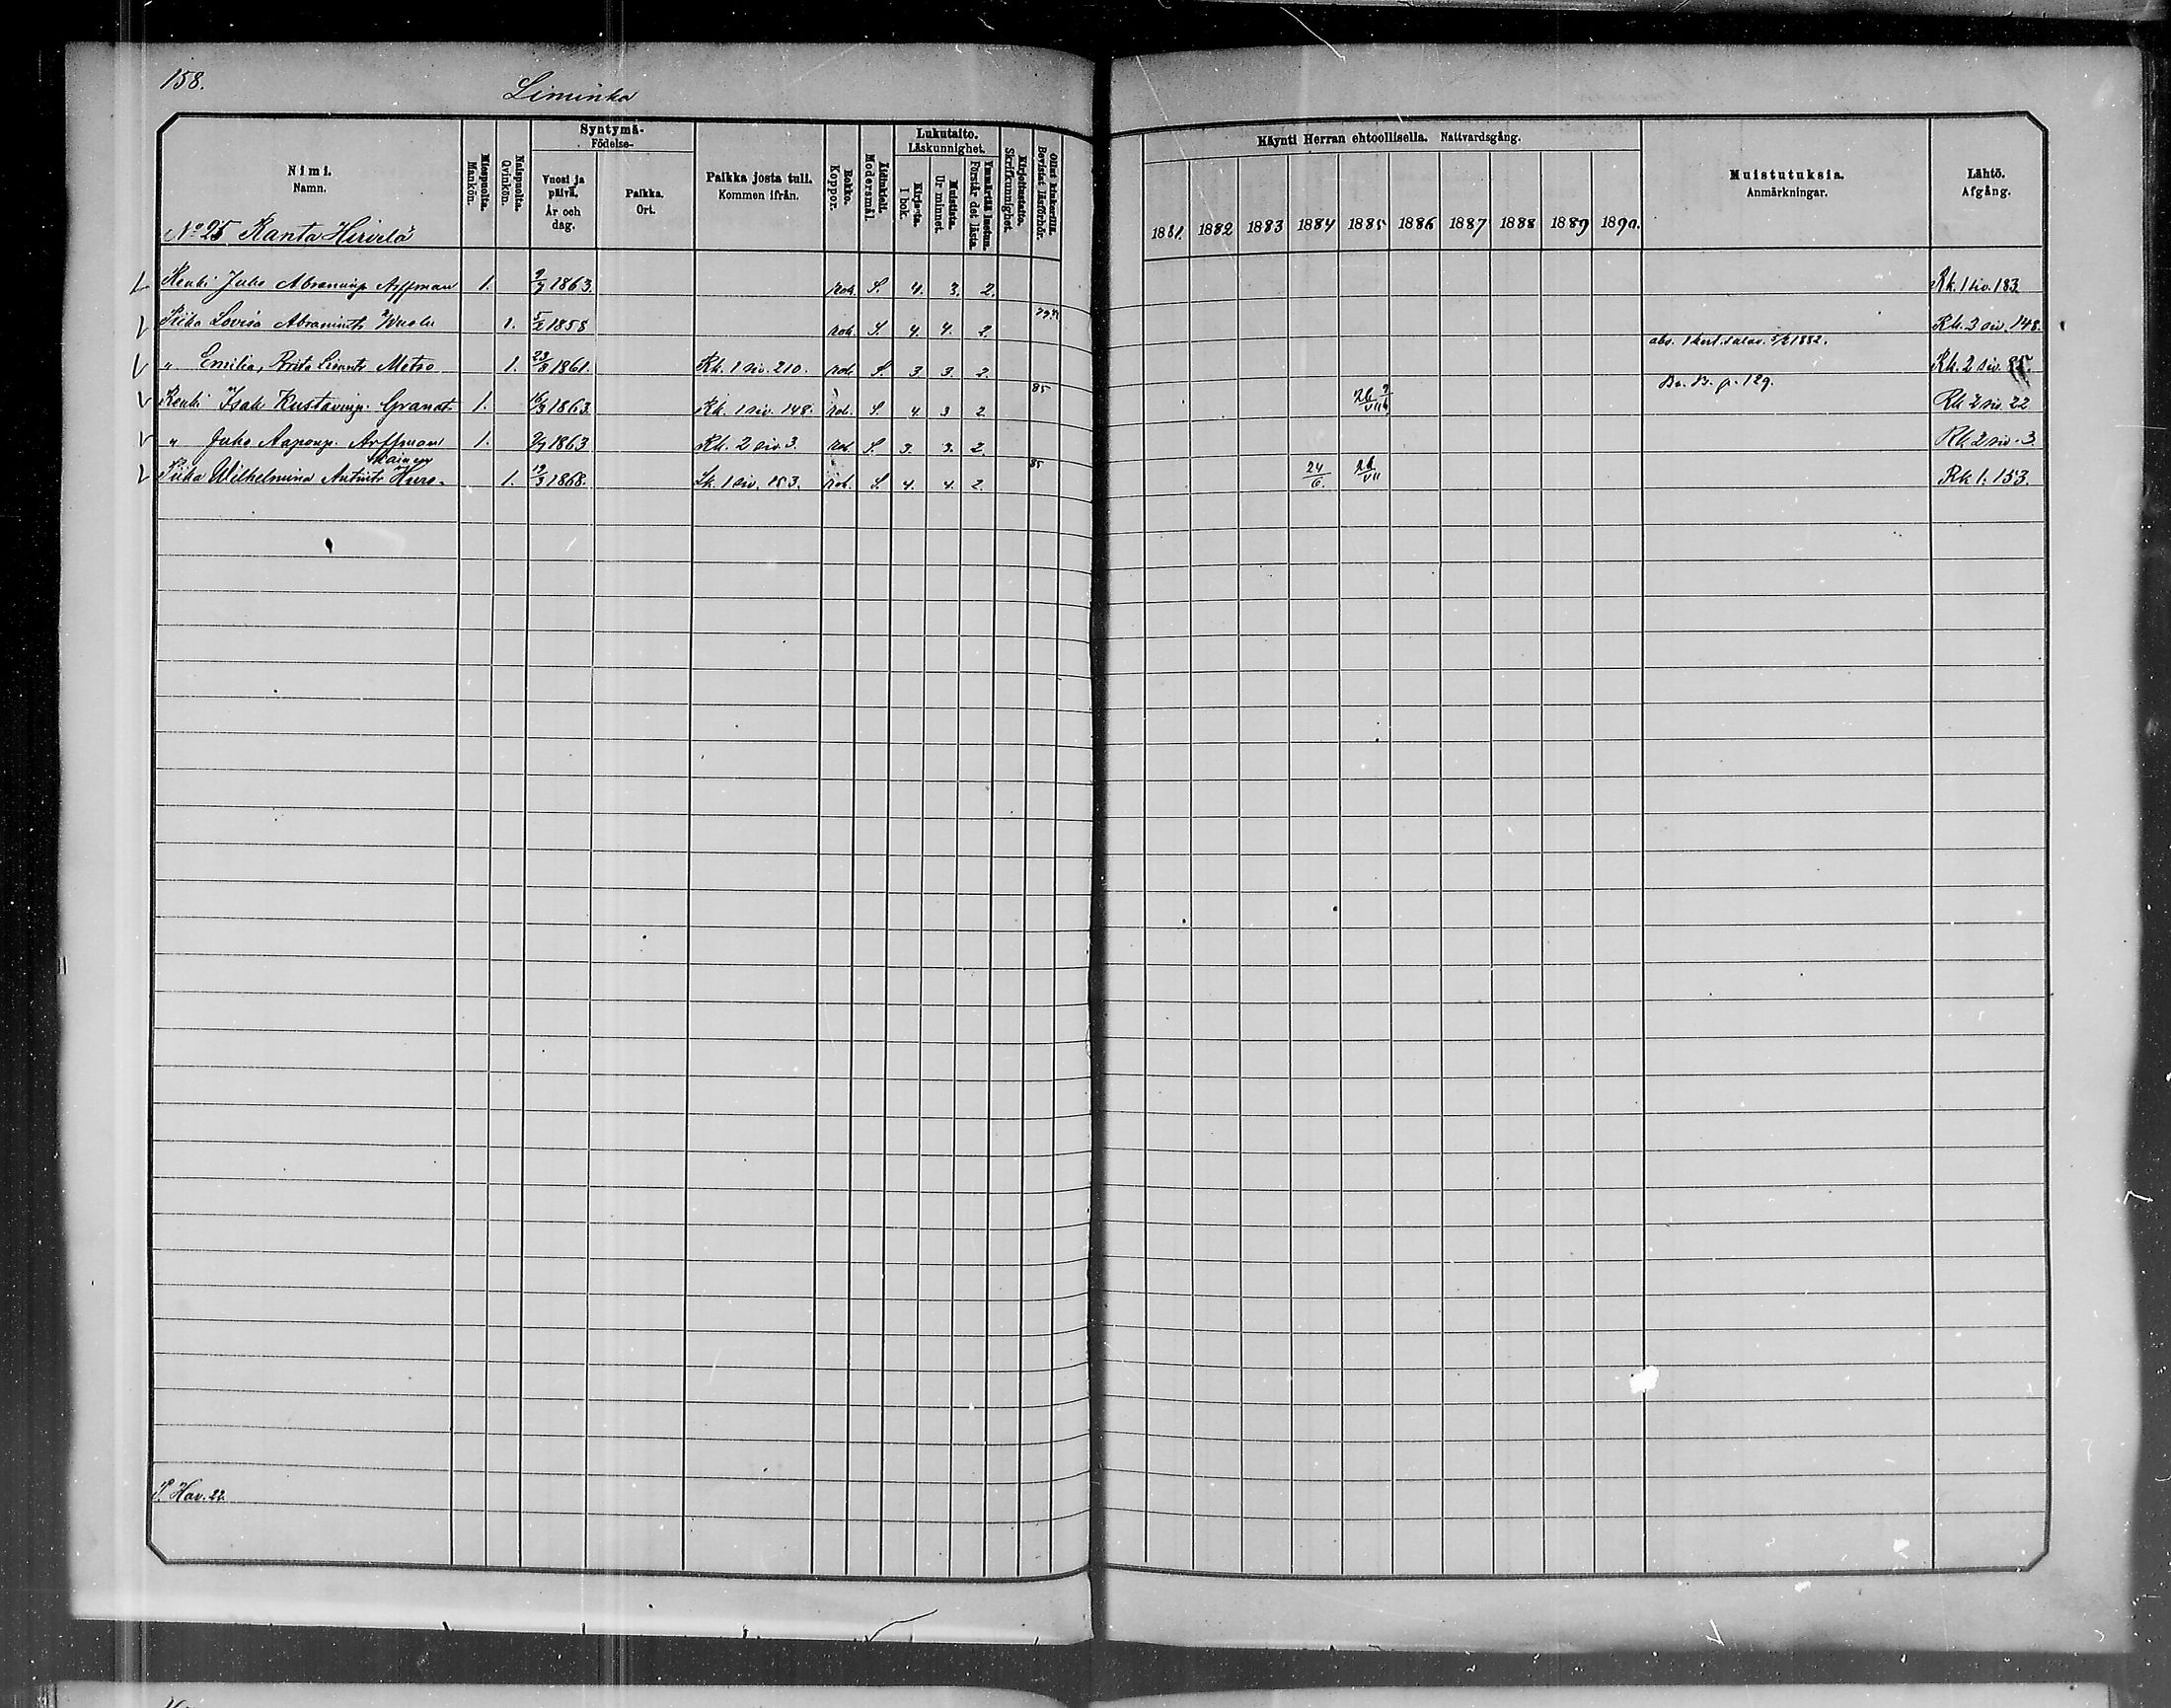 158.
Liminka
Nimi.
Namn.
Miespuolta.
Mankön.
Naispuolta.
Qvinkön.
Syntymä-
Födelse-
Vuosi ja
päivä.
År och
dag.
Paikka.
Ort.
Paikka josta tuli.
Kommen ifrån.
Rokko.
Koppor.
Äidinkieli.
Modersmål.
Lukutaito.
Läskunnighet.
Kirja-ta.
I bok.
Muistista.
Ur minnet.
Ymmärtää luetun.
Förstår det lästa.
Kirjoitustaito.
Skrifkunnighet.
Ollut kinkerillä.
Bevistat läsförhör.
Käynti Herran ehtoollisella. Nattvardsgång.
1881. 1882 1883 1884 1885 1886 1887 1888 1889 1890.
Muistutuksia.
Anmärkningar.
Lähtö.
Afgång.
No 25 Ranta Hirvelä
Renki Juho Abraminp. Arffman 1. 9/7 1863. rok. S. 4. 3. 2. Rk. 1 siv. 183
Piika Lovisa Abramint. 1. 5/2 1858 rok. S. 4. 4. 2. Rk. 3 siv. 148.
" Emilia, Brita Liisant. Metso 1. 23/3 1861. Rk. 1 siv. 210. rok. S. 3. 3. 2. 1882. Rk. 2 siv.
Renki Isak Kustavinp. Granat 1. 16/3 1863. Rk. 1 siv. 148. rok. S. 4. 3 2. 85 26/VII p. 129. Rk 2 siv. 22
" Juho Aaponp. Arffman 1. 9/7 1863 Rk. 2 siv. 3. rok. S. 3. 3. 2. Rk 2 siv. 3
Piika Wilhelmina Antint. 1. 19/3 1868. Lk. 1 siv. 153. rok. S. 4. 4. 2. 85 24/6. 26/VII Rk 1. 153.
P. Hav. 22.